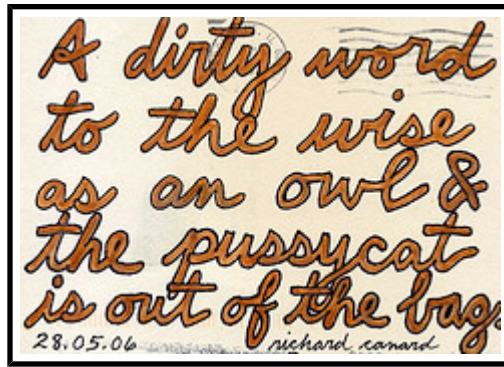 A dirty word
to the wise
as an owl &
the pussycat
is out of the bags
28.05.06 richard canard